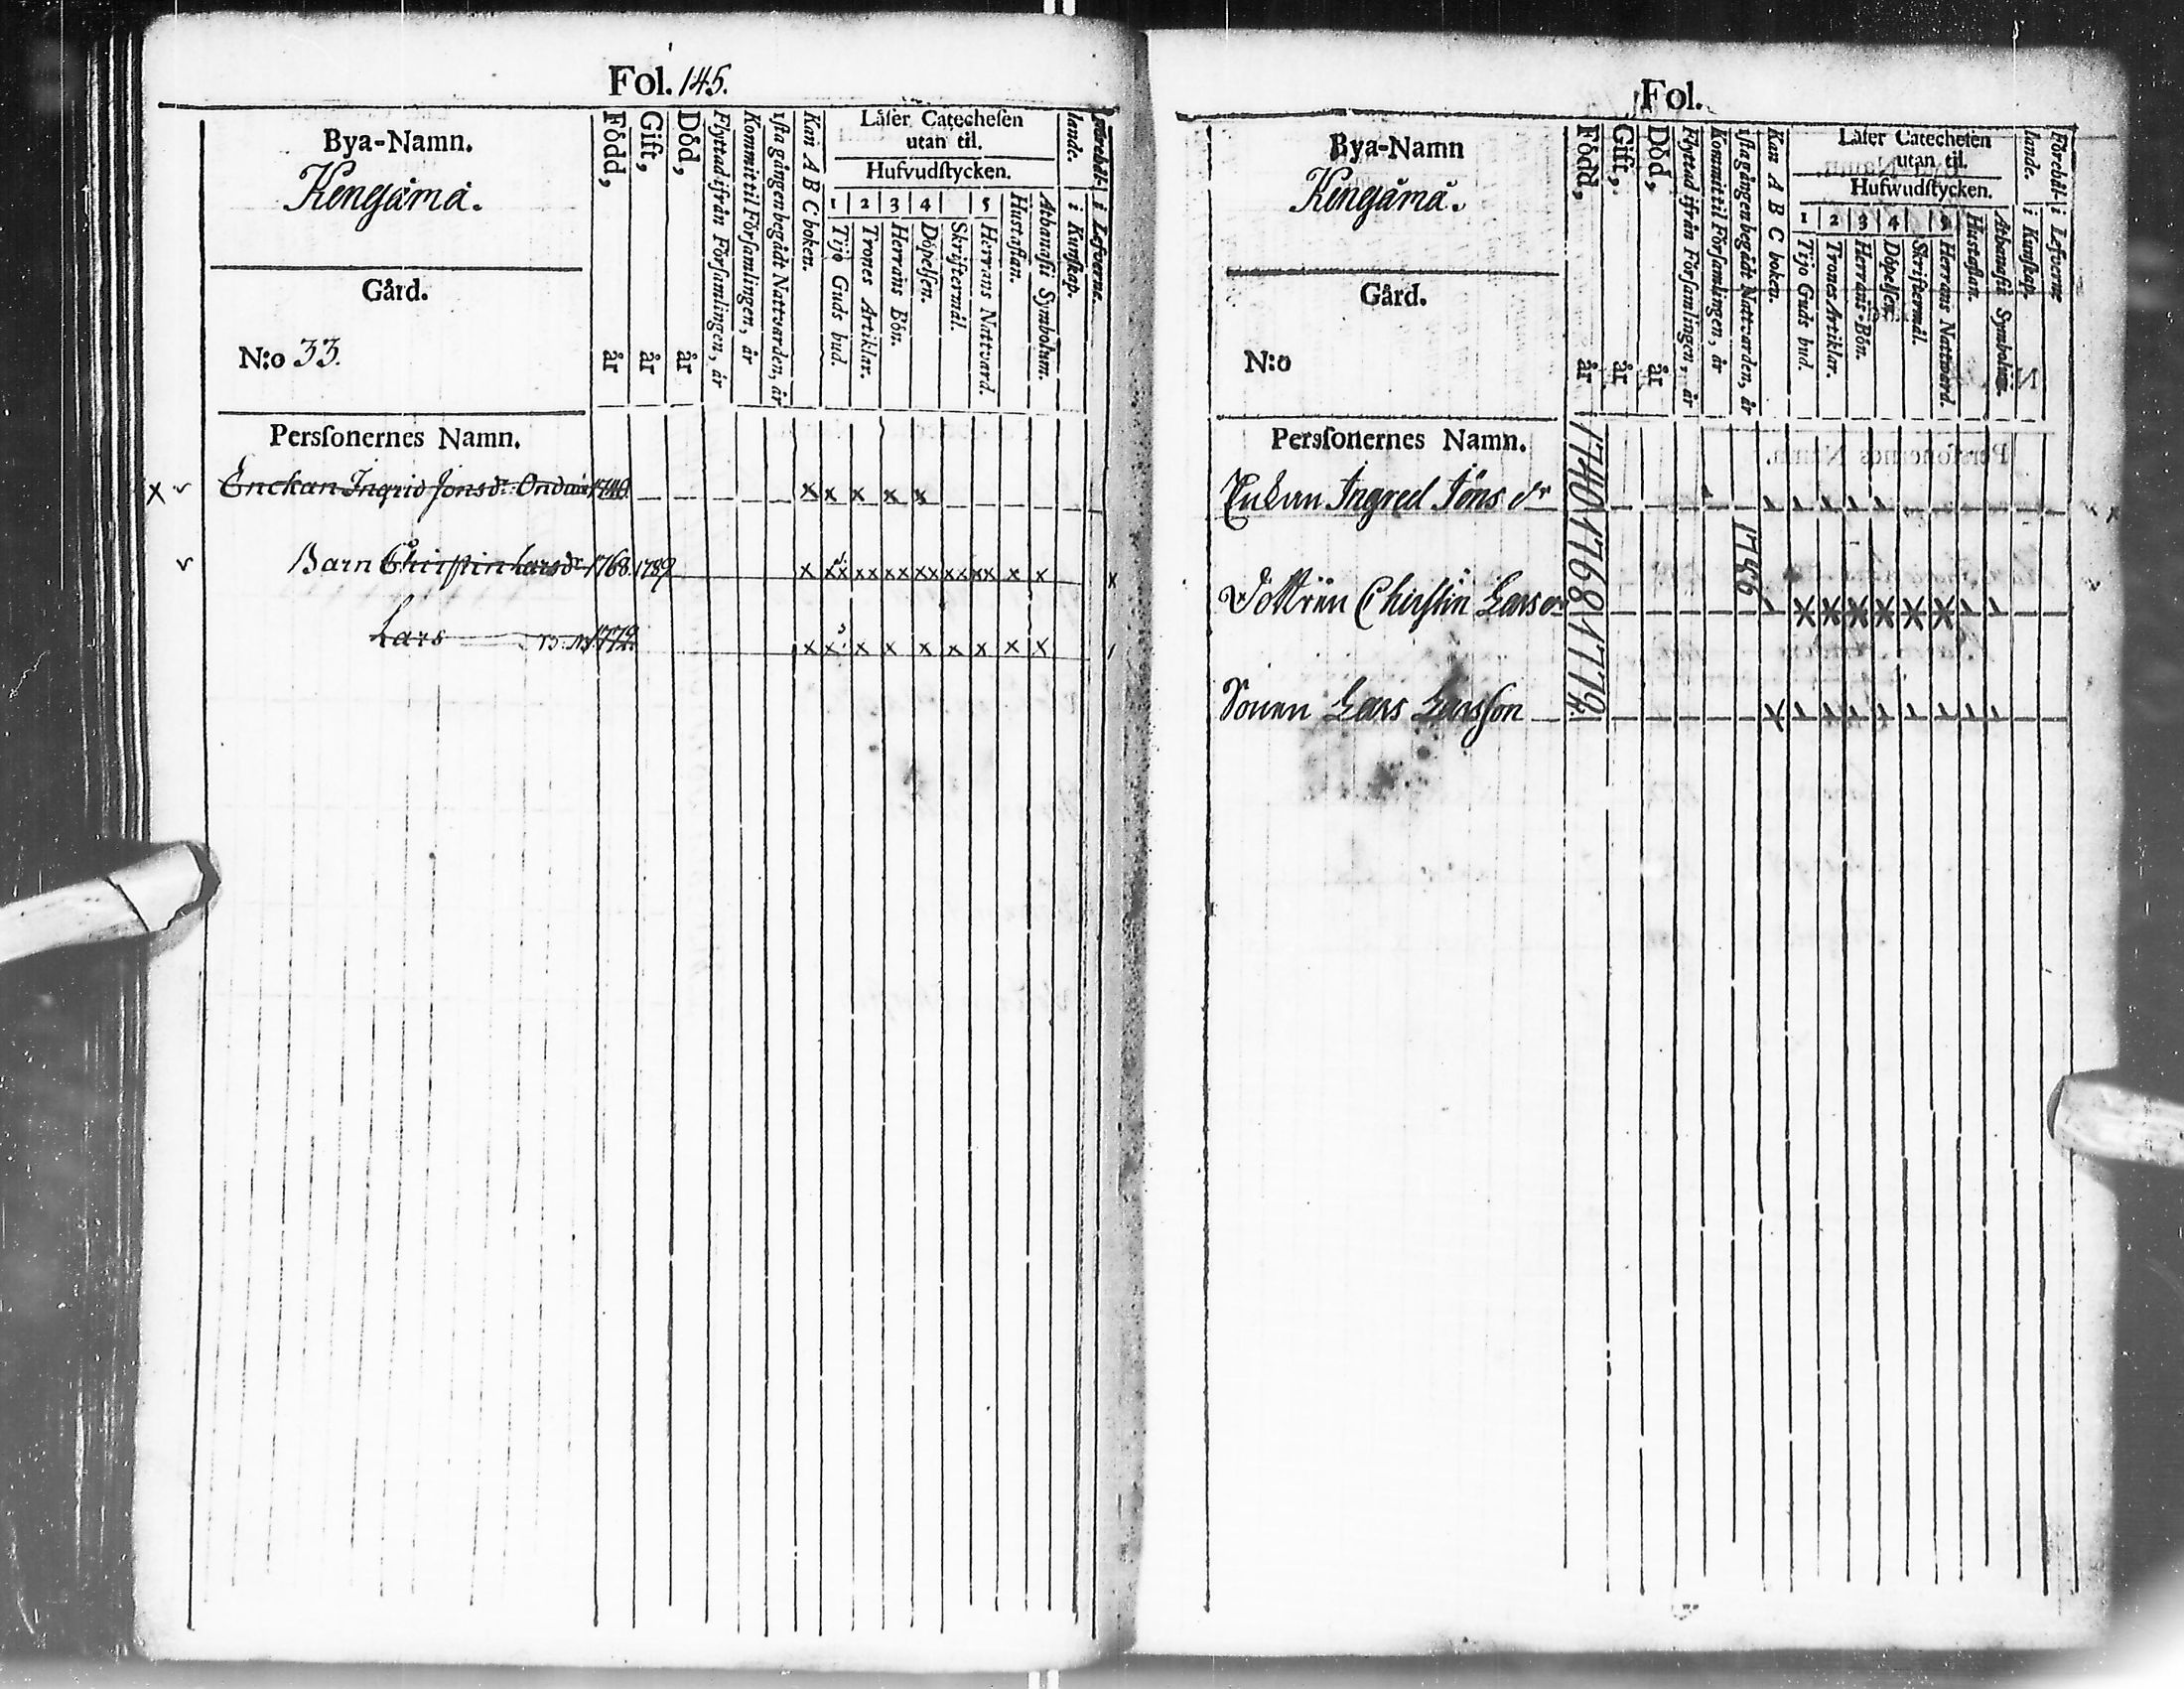 Fol. 145.
Bya-Namn.
Kengämä.
Gård.
N:o 33.
Född, år
Gift, år
Död, år
Flyttad ifrån Församlingen, år
Kommit til Församlingen, år
ista gången begådt Nattvarden, år
Kan A B C boken.
Läser Catechesen
utan til.
Hufvudstycken.
1 2 3 4 5
Tijo Guds bud.
Trones Artiklar.
Herrans Bön.
Döpelsen.
Skriftermål.
Herrans Nattvard.
Hustaflan.
Athanasii Symbolum.
Förehållande.
i Kunskap.
i Lefverne.
Personernes Namn.
Enckan Ingrid Jonsdr. 1740.
Barn Christin Larsdr 1768. 1789
Lars 1779.
Fol.
Bya-Namn
Kengämä.
Gård.
N:o
Född, år
Gift, år
Död, år
Flyttad ifrån Församlingen, år
Kommit til Församlingen, år
ista gången begådt Nattvarden, år
Kan A B C boken.
Läser Catechesen
utan til.
Hufwudstycken.
1 2 3 4 5
Tijo Guds bud.
Trones Artiklar.
Herrans Bön.
Döpelsen.
Skriftermål.
Herrans Nattvard.
Hustaflan.
Athanasii Symbolum.
Förehållande.
i Kunskap.
i Lefverne
Personernes Namn.
Enkan Ingred Jöns dr 1740
Dottren Christin Lars dr 1768 1786
Sonen Lars Larsson 1779